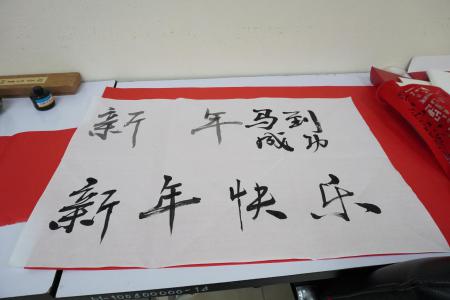 新 年 马到
成功
新年快乐